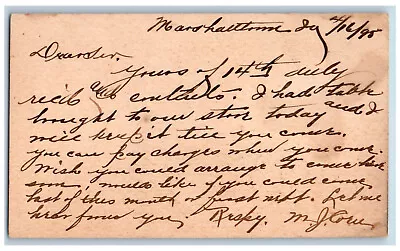 Marshalltown Ia 4/16/95
Dear Sir.
Yours of 14th duly
recib & contents. I had table
brought to our store today and I
will keep it till you come.
you can pay charges when you come.
Wish you could arrange to come here
soon, would like if you could come
last of this month or first next. Let me
hear from you, Respy. M. J.